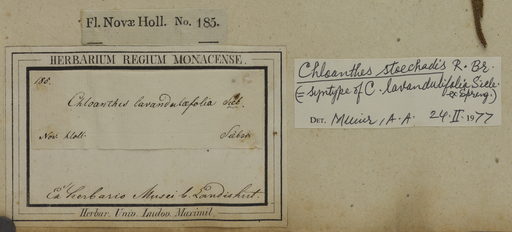 Fl. Novæ Holl. No. 185.
HERBARIUM REGIUM MONACENSE.
185.
Chloanthes lavandulæfolia Sieb.
Nov. Holl. Sieber
Ex herbario Musei b. Landishut.
Herbar. Univ. Ludov. Maximil.
Chloanthes stoechadis R. Br.
(= syntype of C. lavandulifolia Sieb.
ex Spreng.)
DET. Munir, A. A. 24. II. 1977